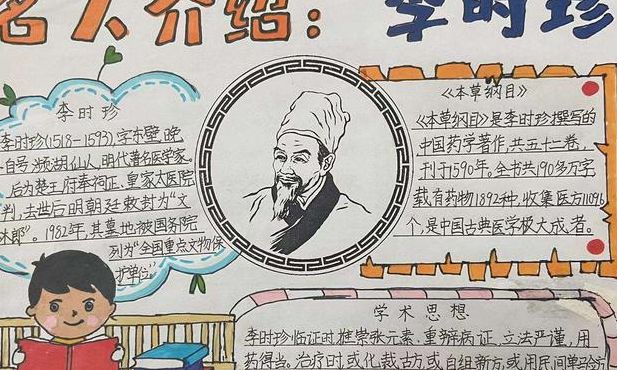 名人介绍：李时珍
李时珍
李时珍(1518-1593)，字东璧，晚
自号濒湖仙人，明代著名医学家。
后为楚王府奉祠正、皇家太医院
判，去世后明朝廷敕封为“文
林郎”。1982年，其墓地被国务院
列为“全国重点文物保
护单位”。
《本草纲目》
《本草纲目》是李时珍撰写的
中国药学著作，共五十二卷，
刊于1590年。全书共190多万字
载有药物1892种，收集医方11096
个，是中国古典医学极大成者。
学术思想
李时珍临证时，推崇张元素，重辨病证，立法严谨，用
药得当。治疗时，或化裁古方，或自组新方，或用民间单验方